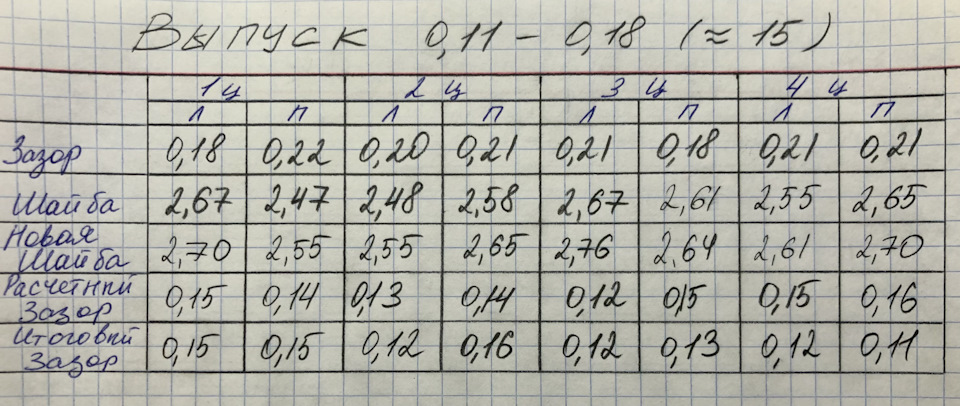 Выпуск 0,11 – 0,18 (≈ 15)
1 ц 2 ц 3 ц 4 ц
Л П Л П Л П Л П
Зазор 0,18 0,22 0,20 0,21 0,21 0,18 0,21 0,21
Шайба 2,67 2,47 2,48 2,58 2,67 2,61 2,55 2,65
Новая
Шайба 2,70 2,55 2,55 2,65 2,76 2,64 2,61 2,70
Расчетный
Зазор 0,15 0,14 0,13 0,14 0,12 0,15 0,15 0,16
Итоговый
Зазор 0,15 0,15 0,12 0,16 0,12 0,13 0,12 0,11